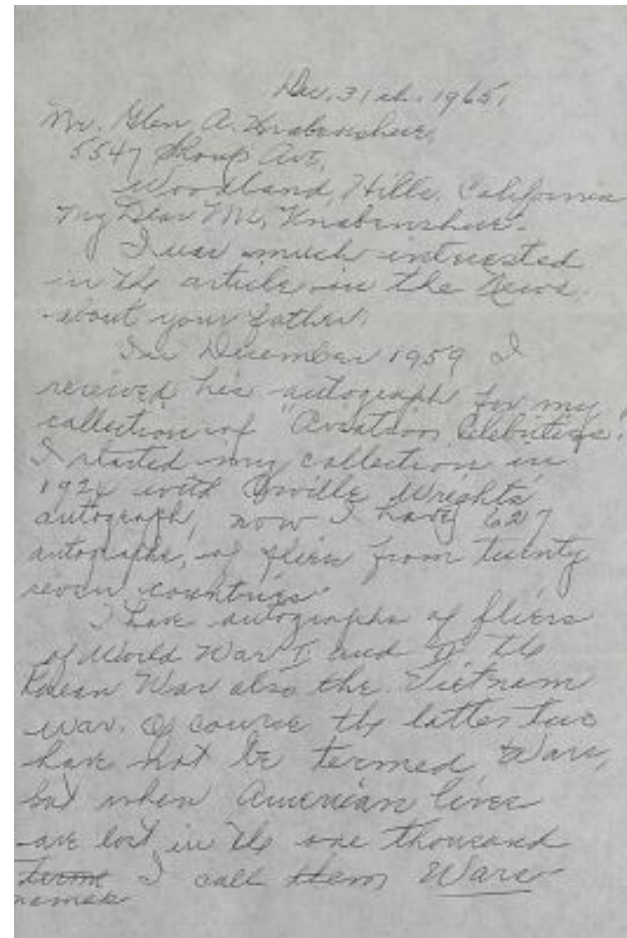 Dec. 31st. 1965.
Mr. Glen A. Knabenshue,
5547 Shoup Ave,
Woodland, Hills, California
My Dear Mr, Knabenshue-
I was much interested
in the article in the News
about your father.
In December 1959 I
received his autograph for my
collection of "Aviation Celebrities".
I started my collection in
192 with Orville Wrights
autograph, now I have 627
autographs, of fliers from twenty
seven countries.
I have autographs of fliers
of World War I and II the
Korean War also the Vietnam
war. Of course the latter two
have not be termed Wars,
but when American lives
are lost in the one thousand
I call them Wars